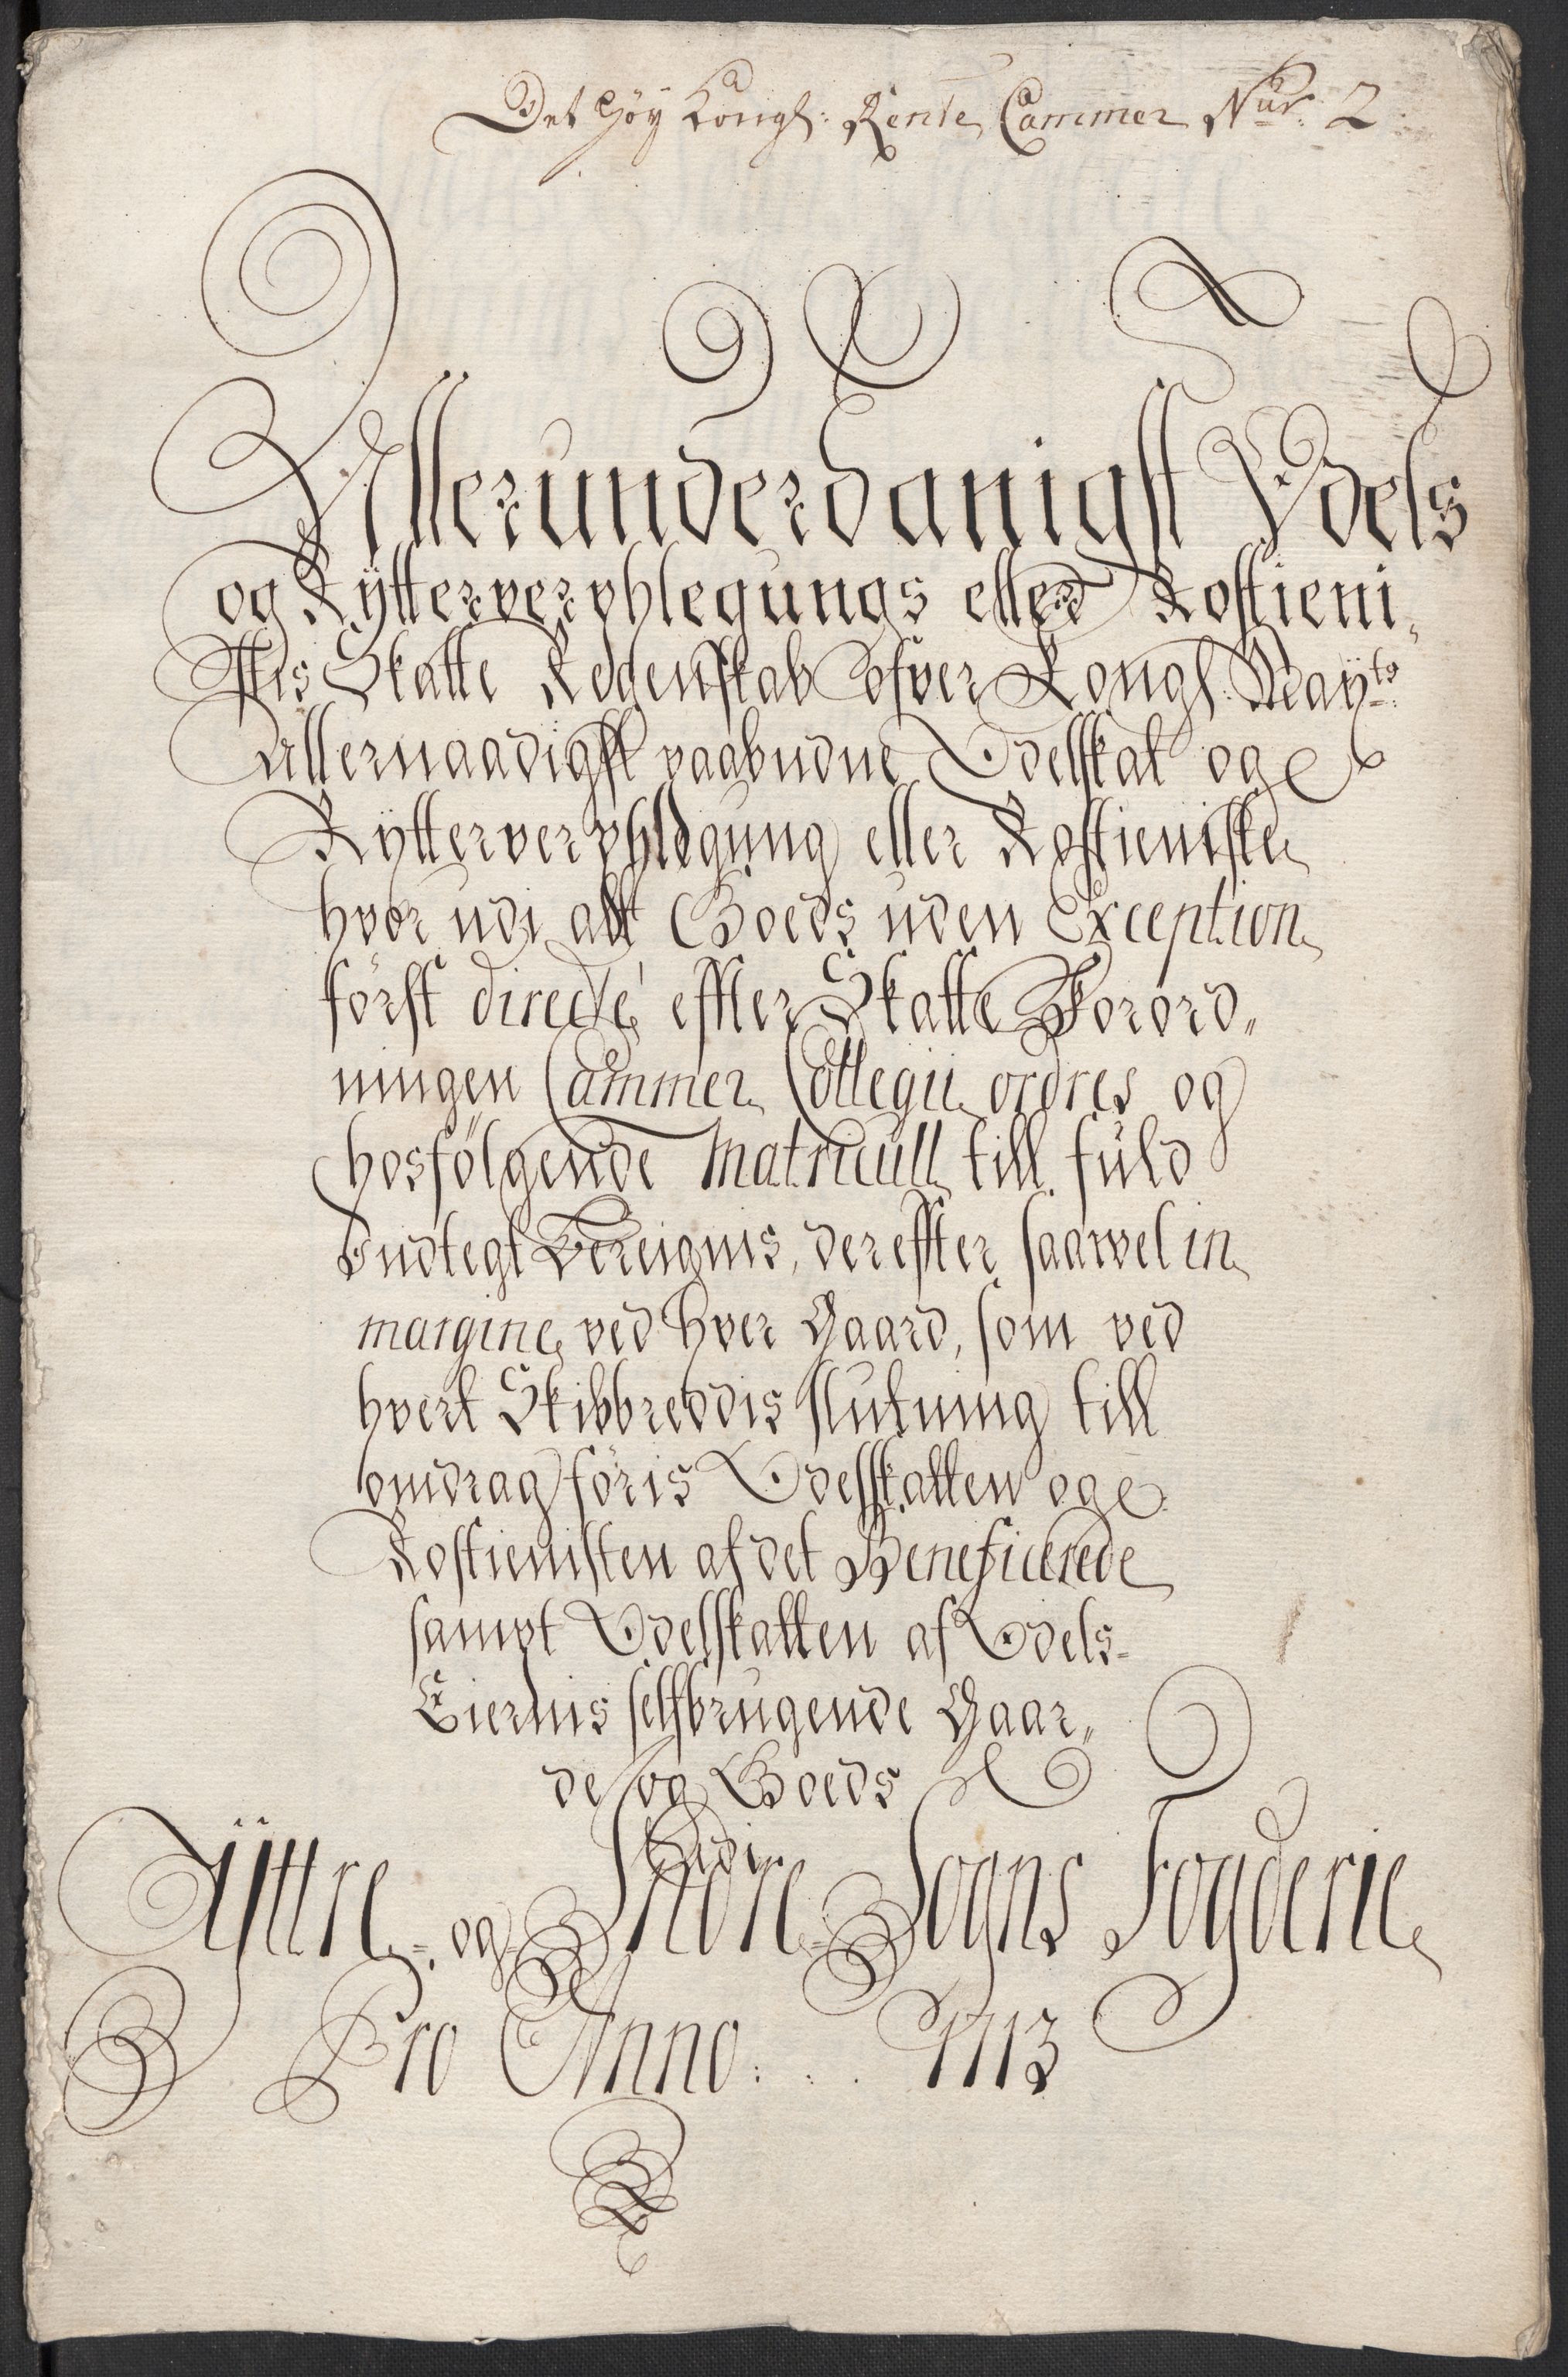 Det Höy Kongl: Rente Cammer Nur: 2
Allerunderdanigst Odels
og Rÿtterverphlegungs eller Rostieni„
stis Skatte Regenskab ofver Kongl: Maÿts:
Allernaadigst paabudne Odelskat og
Rÿtterverphlegung eller Rostieniste
hvor udi alt Goeds uden Exception
först directe effter Skatte Forord„
ningen Cammer Collegii ordres og
hosfölgende Matricull till fuld
Indtegt Bereignis, dereffter saavel in
margine ved hver Gaard, som ved
hvert Skibbreddis slutning till
omdrag föris Odelskatten og
Rostienisten af det Beneficerede
sampt Odelskatten af Odels-
Eiernis selfbrugende Gaar„
de og Goeds
Udi
Ÿttre- og Indre Sogns Fogderie
Pro Anno: 1713